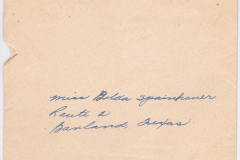 Miss Gelda Spainhauer
Route 2
Garland Texas